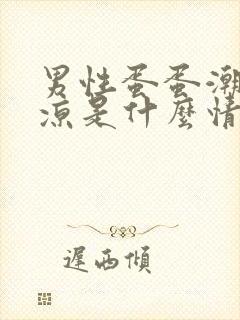 男性蛋蛋潮
凉是什麼情
遲西傾